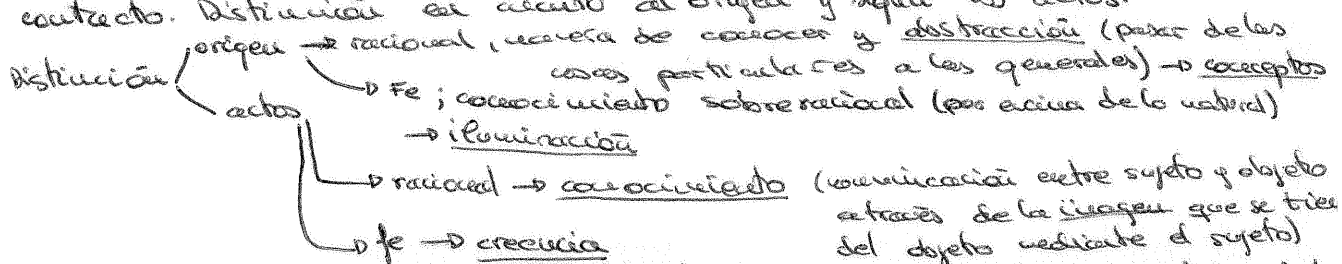 contrecto. Distinción en cuanto al origen y según los actos.
origen → racional, manera de conocer y abstracción (pasar de las
Distinción cosas particulares a las generales) → conceptos
→ Fe; conocimiento sobreracional (por encima de lo natural)
actos → iluminación
→ racional → conocimiento (comunicación entre sujeto y objeto
a través de la imagen que se tien
→ fe → creencia del objeto mediante el sujeto)